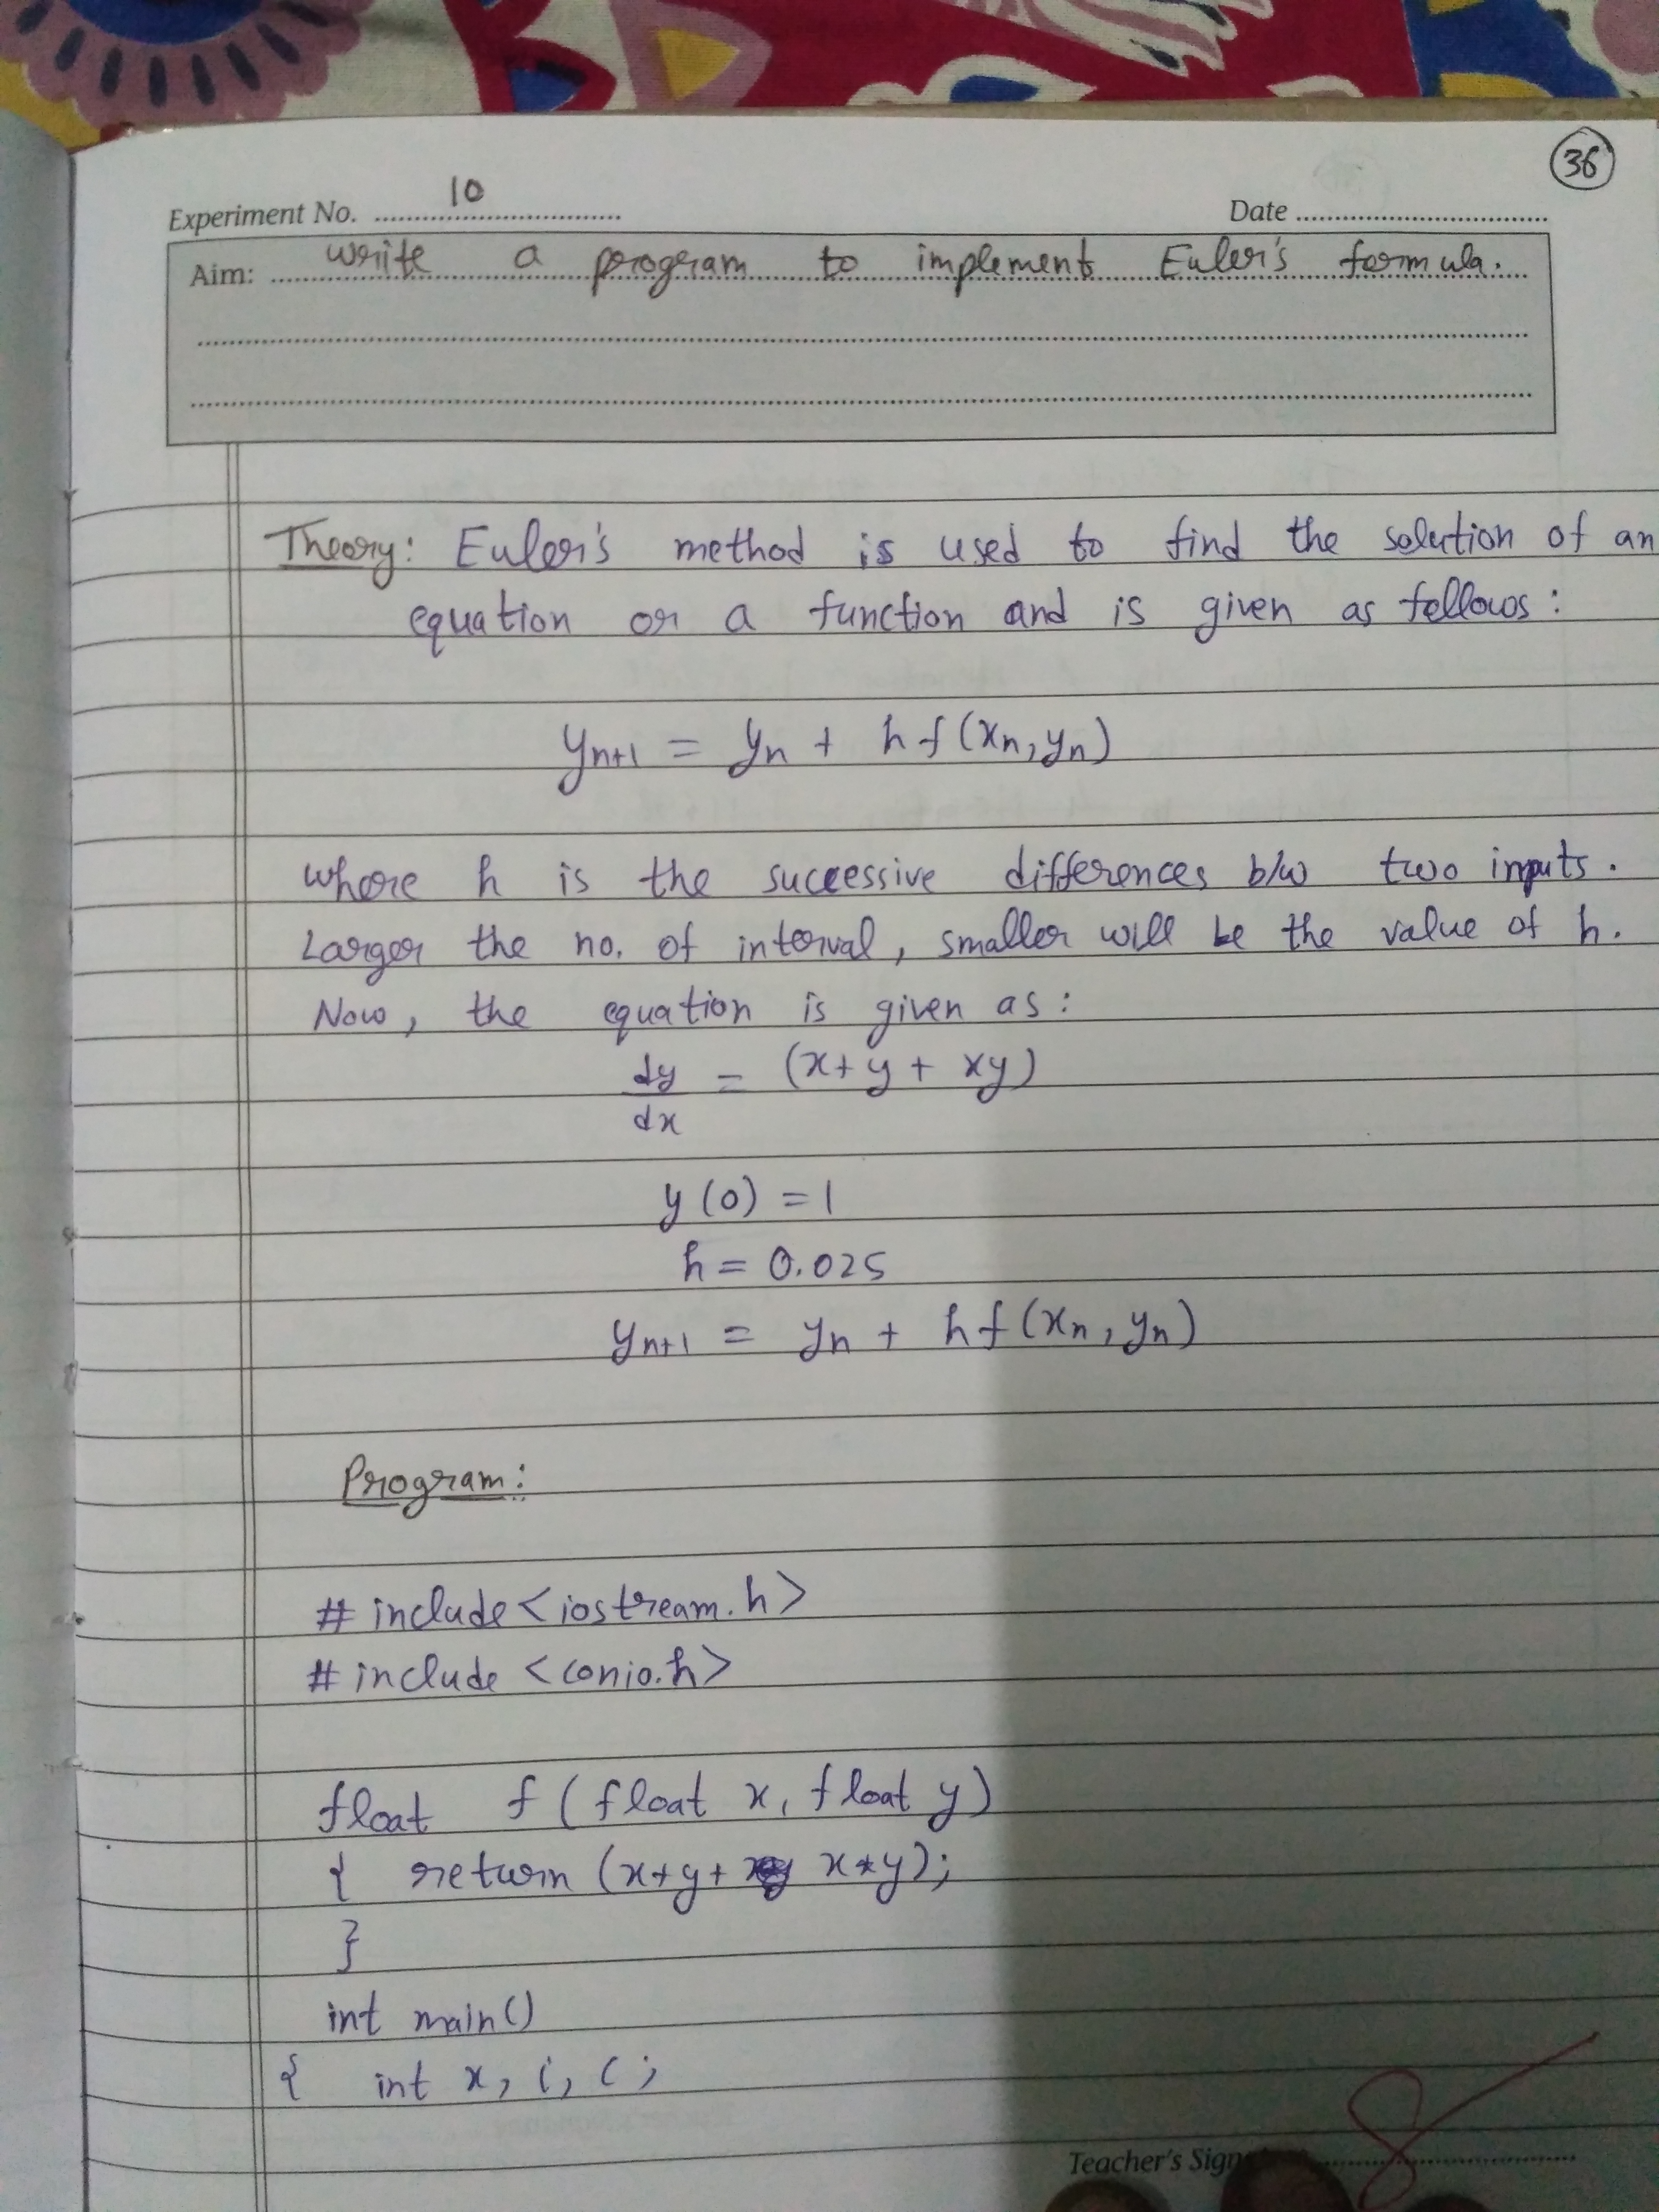 36
Experiment No. 10
Date
Aim: write a program to implement Euler's formula.
Theory: Euler's method is used to find the solution of an
equation or a function and is given as follows:
yn+1 = yn + h f(xn, yn)
where h is the successive differences b/w two inputs.
Larger the no. of interval, smaller will be the value of h.
Now, the equation is given as:
dy/dx = (x+y+xy)
y(0) = 1
h = 0.025
yn+1 = yn + h f(xn, yn)
Program:
# include <iostream.h>
# include <conio.h>
float f(float x, float y)
{ return (x+y+ x*y);
}
int main()
{ int x, i, c;
Teacher's